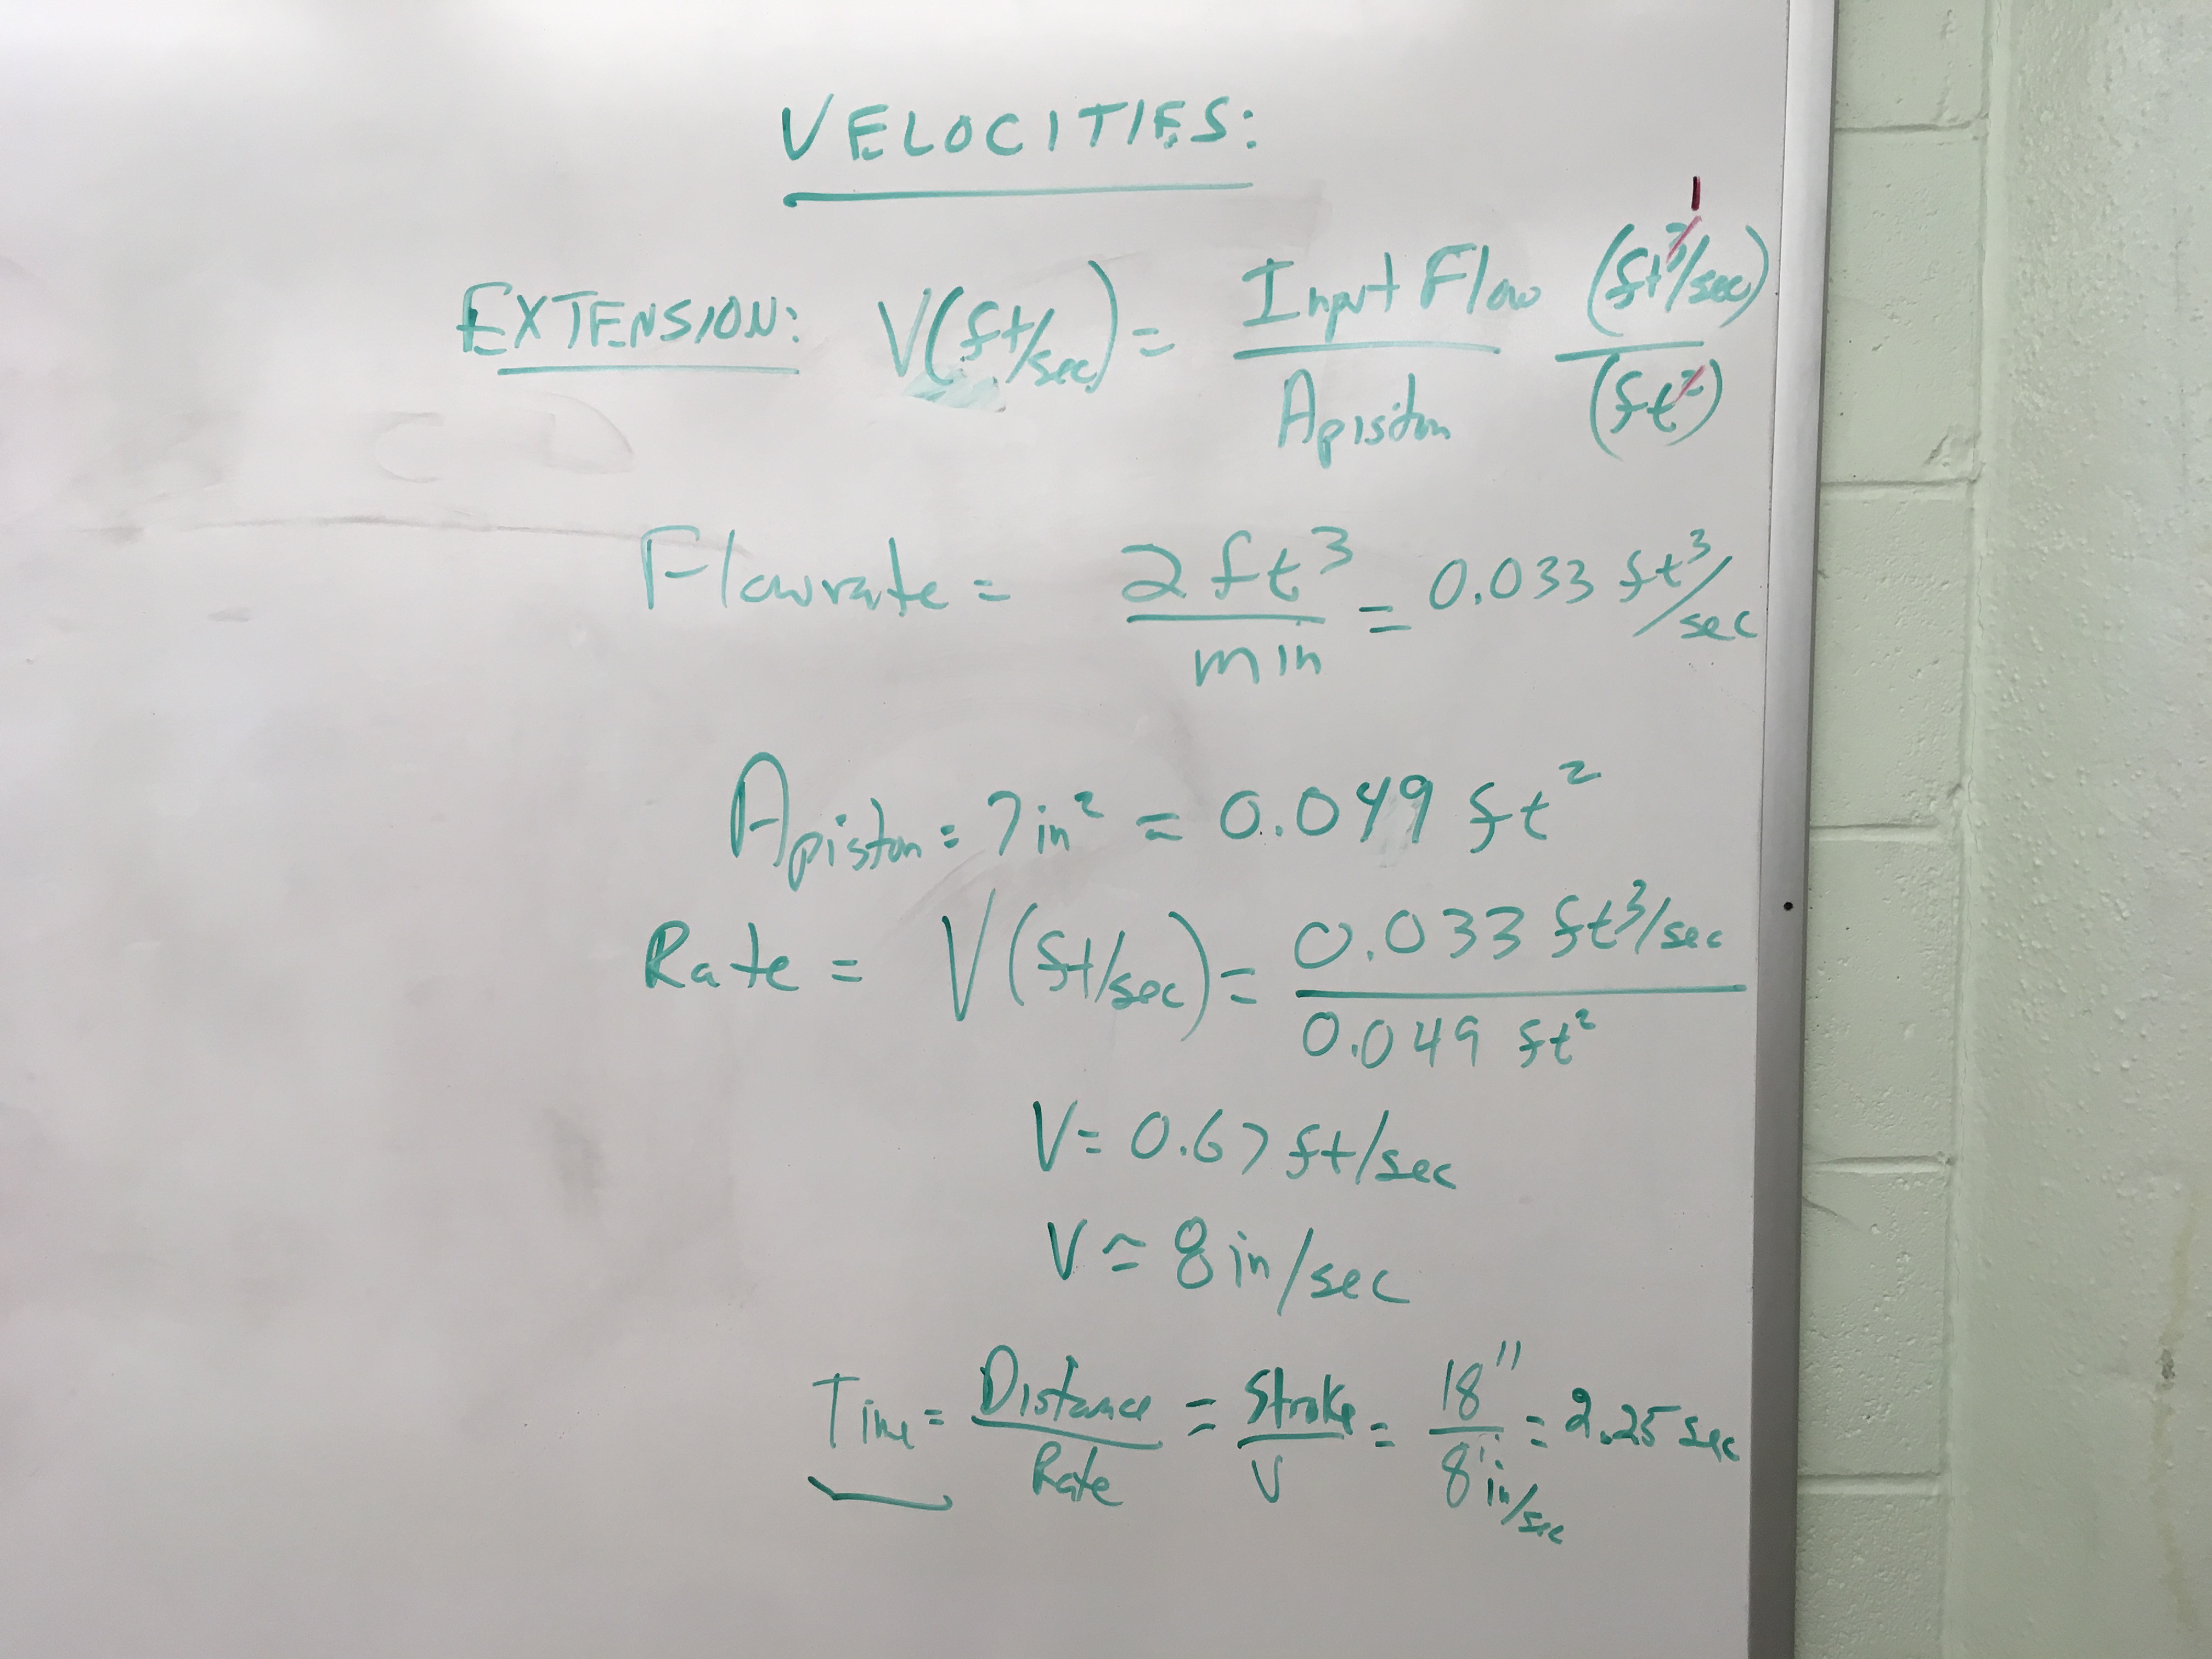 VELOCITIES:
EXTENSION: V(ft/sec) = Input Flow (ft³/sec) 1
Apiston (ft²)
Flowrate = 2 ft³ = 0.033 ft³/sec
min
Apiston = 7 in² = 0.049 ft²
Rate = V(ft/sec) = 0.033 ft³/sec
0.049 ft²
V = 0.67 ft/sec
V ≈ 8 in/sec
Time = Distance = Stroke = 18" = 2.25 sec
Rate V 8 in/sec